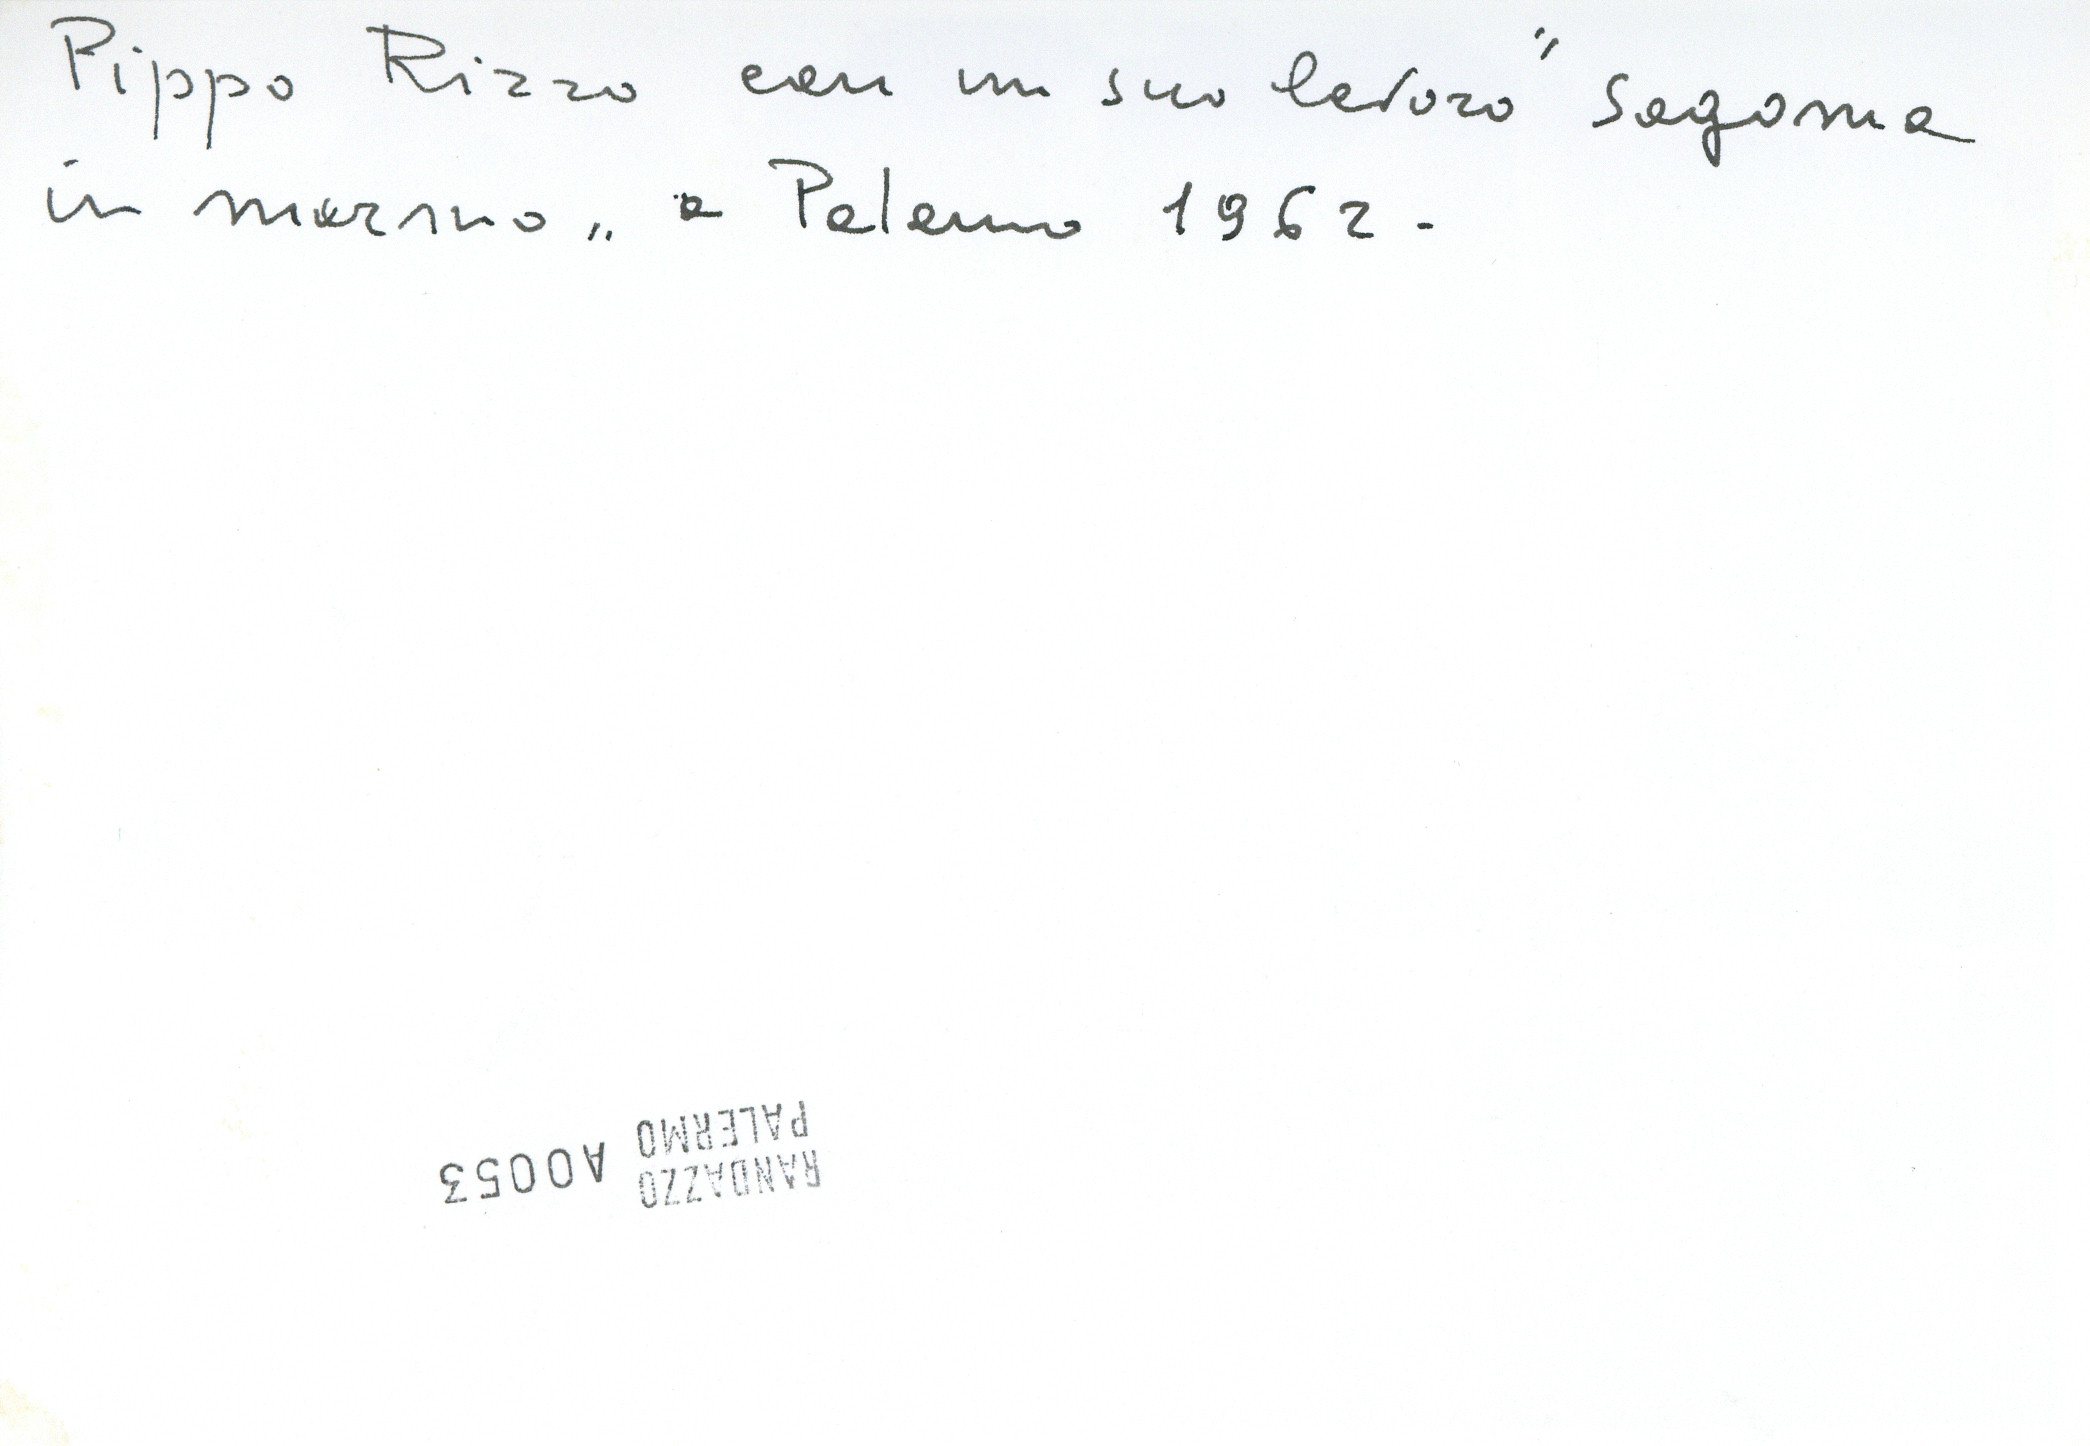 Pippo Rizzo con un suo lavoro "Sagoma
in marmo„ a Palermo 1962.
RANDAZZO
PALERMO
A0053